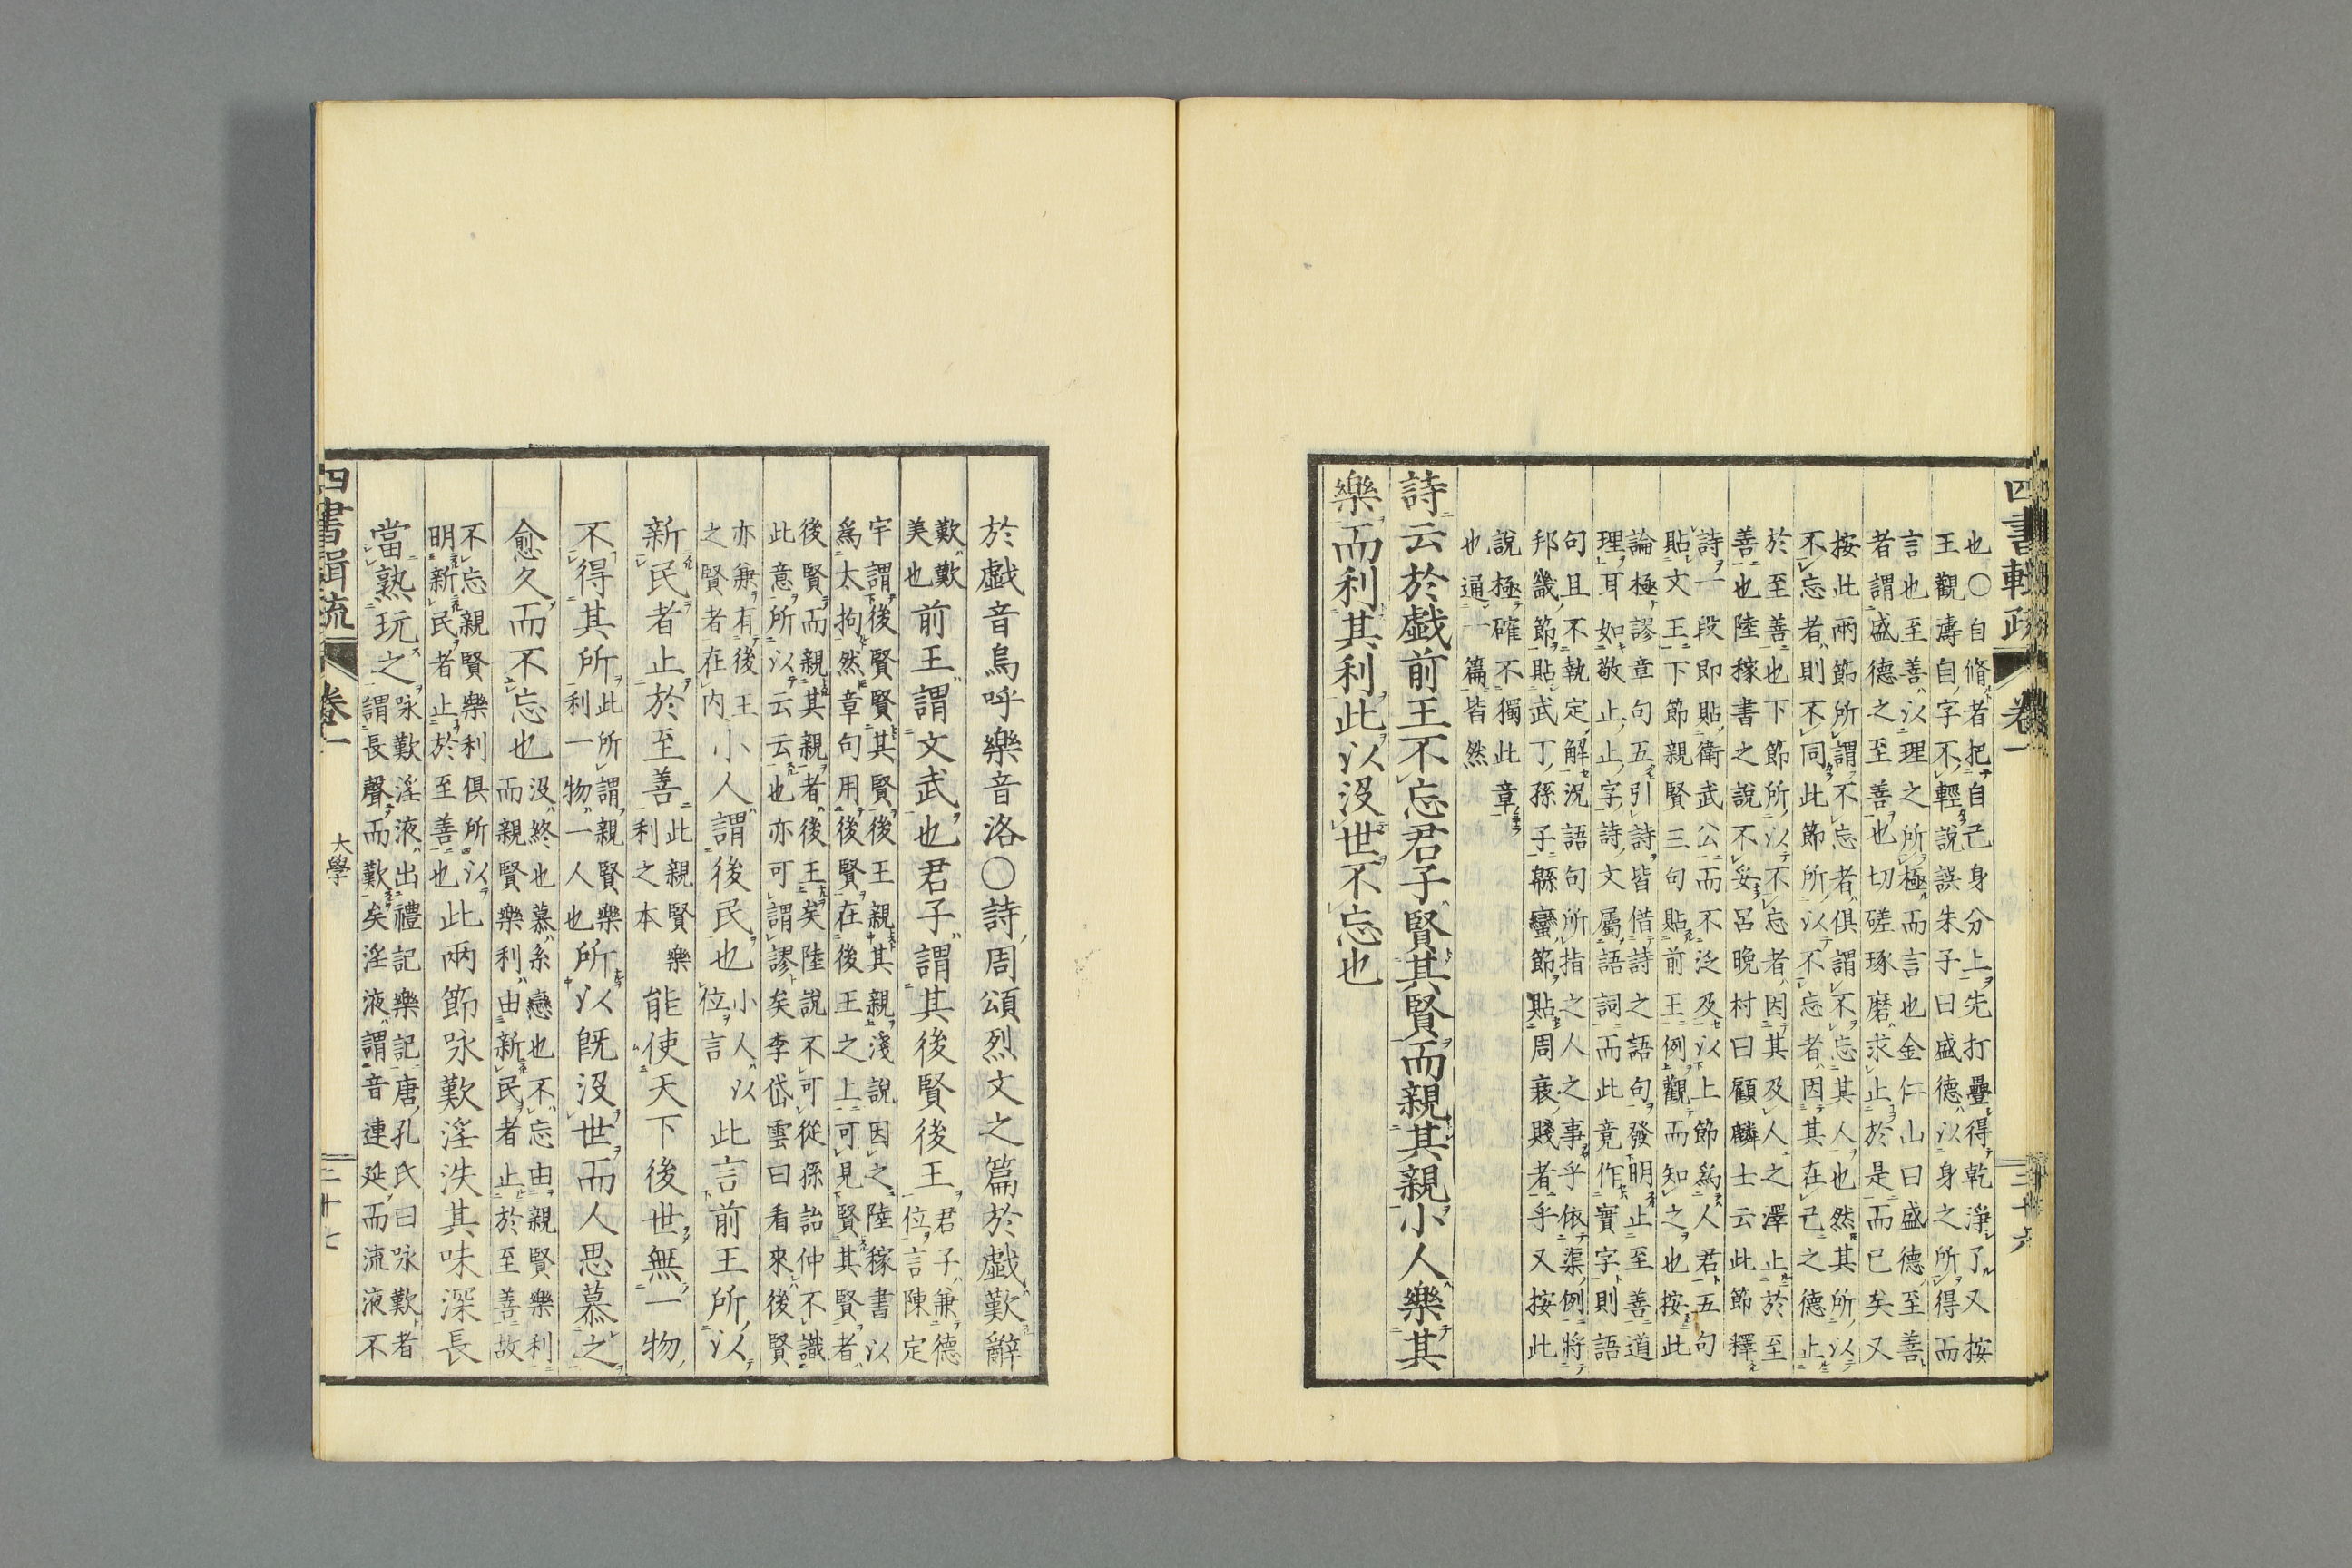 四書輯疏 卷一 三十六
也〇自脩者把自己身分上先打疊得乾淨了又按
王觀濤自字不輕說誤朱子曰盛德以身之所得而
言也至善以理之所極而言也金仁山曰盛德至善
者謂盛德之至善也切磋琢磨求止於是而已矣又
按此兩節所謂不忘者俱謂不忘其人也然其所以
不忘者則不同此節所以不忘者因其在己之德止
於至善也下節所以不忘者因其及人之澤止於至
善也陸稼書之說不妥呂晚村曰顧麟士云此節釋
詩一段即貼衛武公而不泛及以上節爲人君五句
貼文王下節親賢三句貼前王例觀而知之也按此
論極謬章句五引詩皆借詩之語句發明止至善道
理耳如敬止止字詩文屬語詞而此竟作實字則語
句且不執定解況語句所指之人之事乎依渠例將
邦畿節貼武丁孫子緜蠻節貼周衰賤者乎又按此
說極確不獨此章
也通一篇皆然
詩云於戲前王不忘君子賢其賢而親其親小人樂其
樂而利其利此以沒世不忘也
於戲音烏呼樂音洛〇詩周頌烈文之篇於戲歎辭
歎歎
美也
前王謂文武也君子謂其後賢後王
君子兼德
位言陳定
宇謂後賢賢其賢後王親其親淺說因之陸稼書以
爲太拘然章句用後賢在後王之上可見賢其賢者
後賢而親其親者後王矣陸說不可從孫詒仲不識
此意所以云云也亦可謂謬矣李岱雲曰看來後賢
亦兼有後王
之賢者在內
小人謂後民也
小人以
位言
此言前王所以
新民者止於至善
此親賢樂
利之本
能使天下後世無一物
不得其所
此所謂親賢樂
利一物一人也
所以既沒世而人思慕之
愈久而不忘也
沒終也慕系戀也不忘由親賢樂利
而親賢樂利由新民者止於至善故
不忘親賢樂利俱所以
明新民者止於至善也
此兩節咏歎淫泆其味深長
當熟玩之
咏歎淫液出禮記樂記唐孔氏曰咏歎者
謂長聲而歎矣淫液謂音連延而流液不
四書輯疏 卷一 大學 三十七